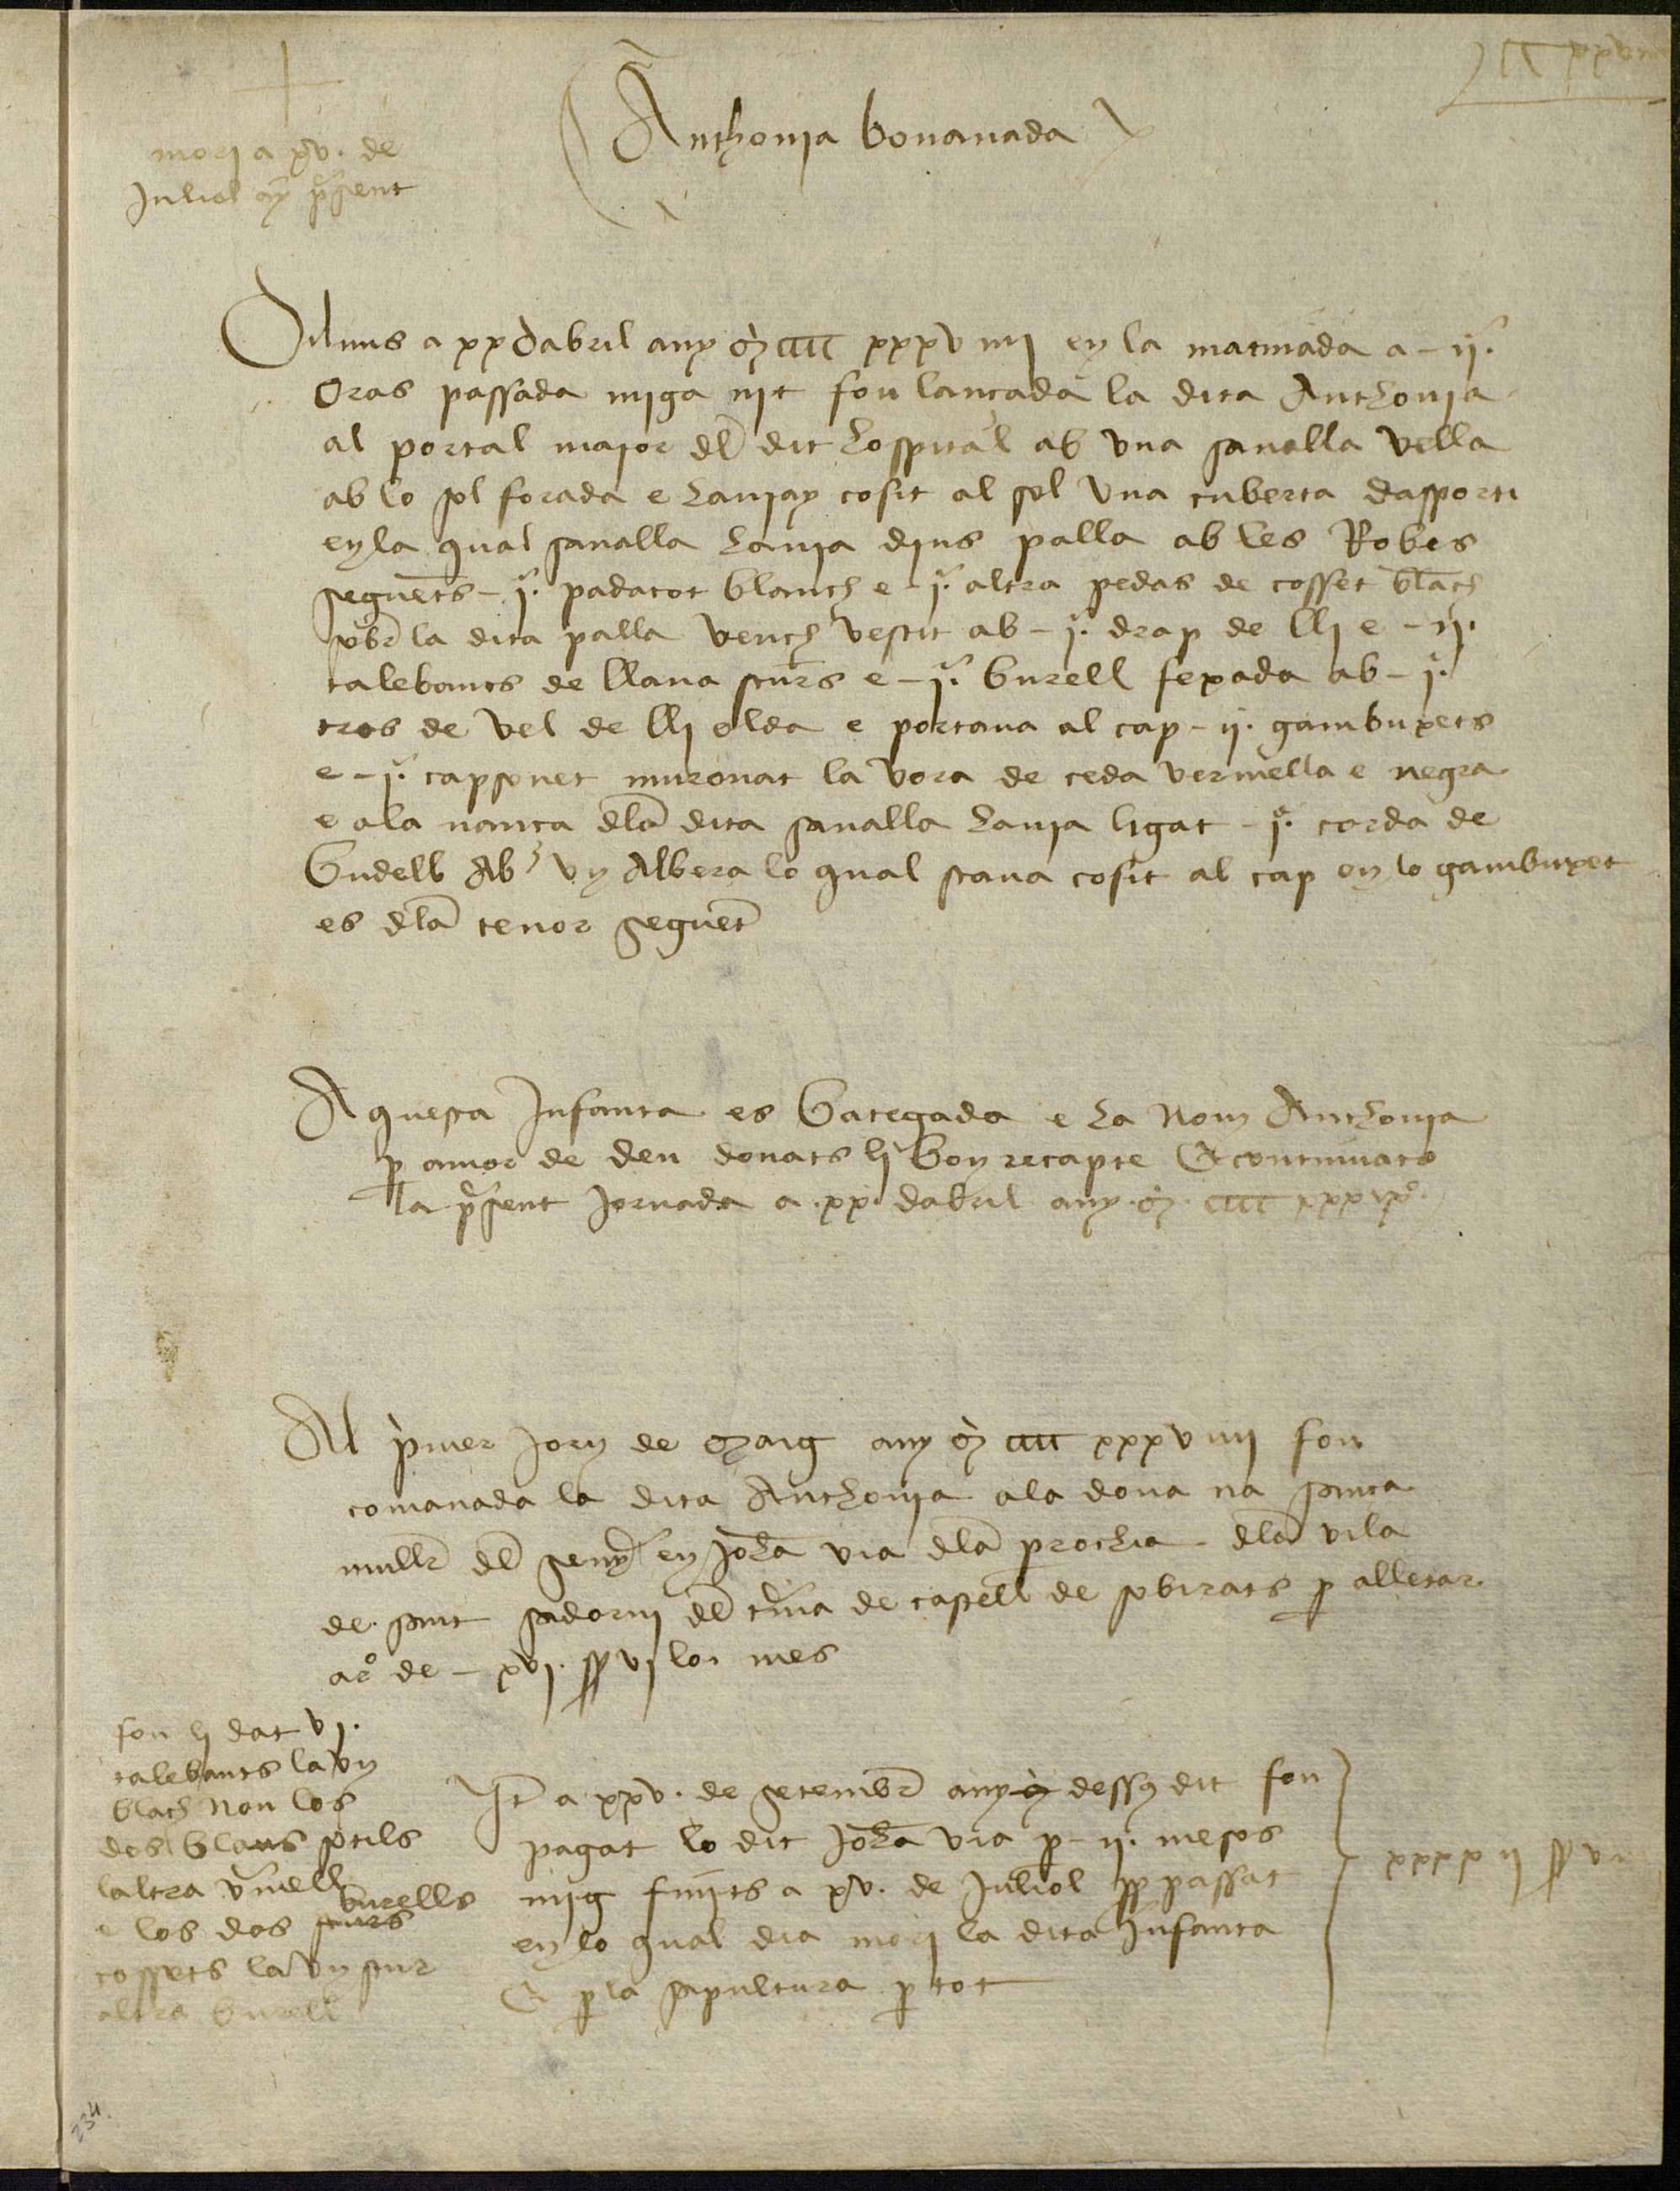 CC xxviiii
+
mori a xv. de
Juliol añy present
Anthonia bonanada
Diluns a xx dabril any M CCCC xxxviiii en la matinada a - ii.
Oras passada miga nit fou lançada la dita Anthonia
al portal major del dit hospital ab vna sanalla vella
ab lo sol forada e hauiay cosit al sol vna cuberta dasporti
en la qual sanalla hauia dins palla ab les Robes
seguents - jª. padaçot blanch e - jª. altra pedas de cosset blāch
sobre la dita palla vench vestit ab - j. drap de lli e - ii.
calebants de llana scurs e - jª. burell fexada ab - j.
tros de vel de lli olda e portaua al cap - ii. gambuxets
e - jª. capsonet muronat la vora de ceda vermella e negra
e ala nança dela dita sanalla hauia ligat - jª. corda de
Budell Ab vn Albera lo qual staua cosit al cap en lo gambuxet
es dela tenor seguent
Aquesta Infanta es Bategada e ha Nom Anthonia
per amor de deu donats li Bon recapte Et continuats
la present Jornada a .xx. dabril any .M. CCCC xxxixº.
Al primer Jorn de Maig any M CCCC xxxviiii fou
comanada la dita Anthonia ala dona na santa
muller del senyer en Johā via dela prochia dela vila
de sant sadorni del terme de castell de sobirats per alletar
aro de - xvj. ss vj lo mes
fou li dat vj.
calebants la vn
blāch Nou los
dos blaus sotils
laltra vermell
burells
e los dos scurs
cossets la vn scur
altra burell
Item a xxv. de setembre any dessus dit fou
pagat lo dit Johā via per - ii. mesos
mig finits a xv. de Juliol prop passat
en lo qual dia mori la dita Infanta
Et per la sapultura per tot
xxxx ii ss vi
234.